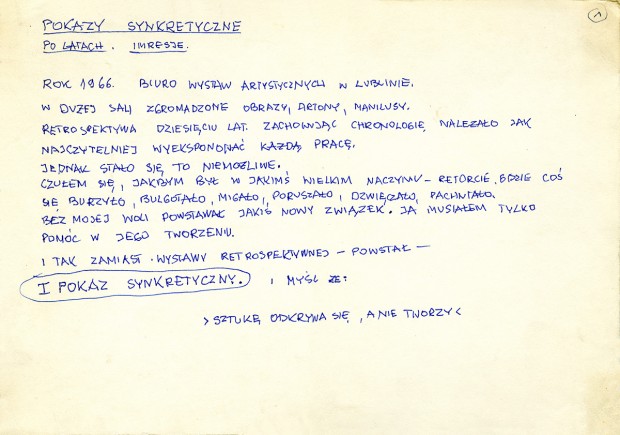 1
POKAZY SYNKRETYCZNE
PO LATACH. IMRESJE.
ROK 1966. BIURO WYSTAW ARTYSTYCZNYCH W LUBLINIE.
W DUŻEJ SALI ZGROMADZONE OBRAZY, ARTONY, MANILUSY.
RETROSPEKTYWA DZIESIĘCIU LAT. ZACHOWUJĄC CHRONOLOGIĘ NALEŻAŁO JAK
NAJCZYTELNIEJ WYEKSPONOWAĆ KAŻDĄ PRACĘ.
JEDNAK STAŁO SIĘ TO NIEMOŻLIWE.
CZUŁEM SIĘ, JAKBYM BYŁ W JAKIMŚ WIELKIM NACZYNIU – RETORCIE, GDZIE COŚ
SIĘ BURZYŁO, BULGOTAŁO, MIGAŁO, PORUSZAŁO, DŹWIĘCZAŁO, PACHNIAŁO.
BEZ MOJEJ WOLI POWSTAWAŁ JAKIŚ NOWY ZWIĄZEK. JA MUSIAŁEM TYLKO
POMÓC W JEGO TWORZENIU.
I TAK ZAMIAST WYSTAWY RETROSPEKTYWNEJ – POWSTAŁ –
I POKAZ SYNKRETYCZNY. I MYŚL ŻE:
>SZTUKĘ ODKRYWA SIĘ, A NIE TWORZY<